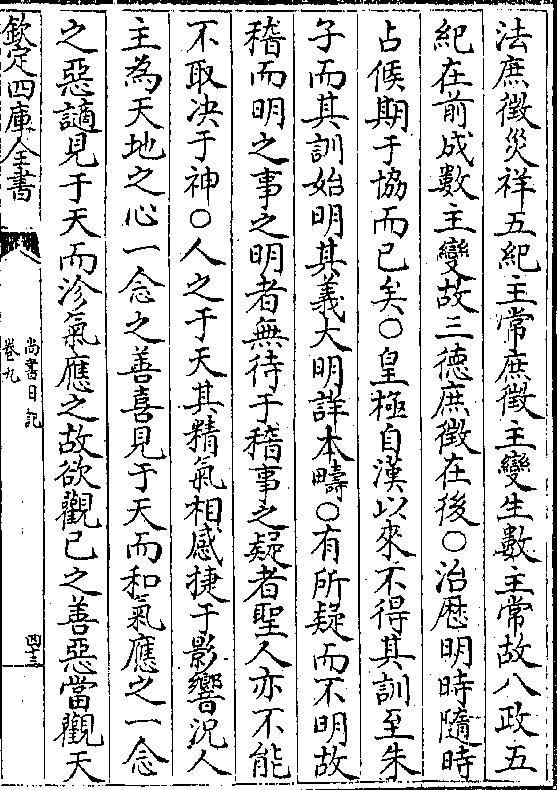 法庶徵災祥五紀主常庶徵主變生數主常故八政五
紀在前成數主變故三徳庶徵在後〇治厯明時隨時
占候期于協而已矣〇皇極自漢以來不得其訓至朱
子而其訓始明其義大明詳本疇〇有所疑而不明故
稽而明之事之明者無待于稽事之疑者聖人亦不能
不取决于神〇人之于天其精氣相感捷于影響況人
主為天地之心一念之善喜見于天而和氣應之一念
之惡謫見于天而沴氣應之故欲觀已之善惡當觀天
欽定四庫全書
尚書日記
卷九
四十三